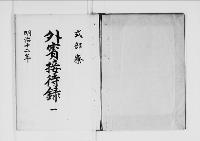 式部寮
外賓接待録 一
明治十二年